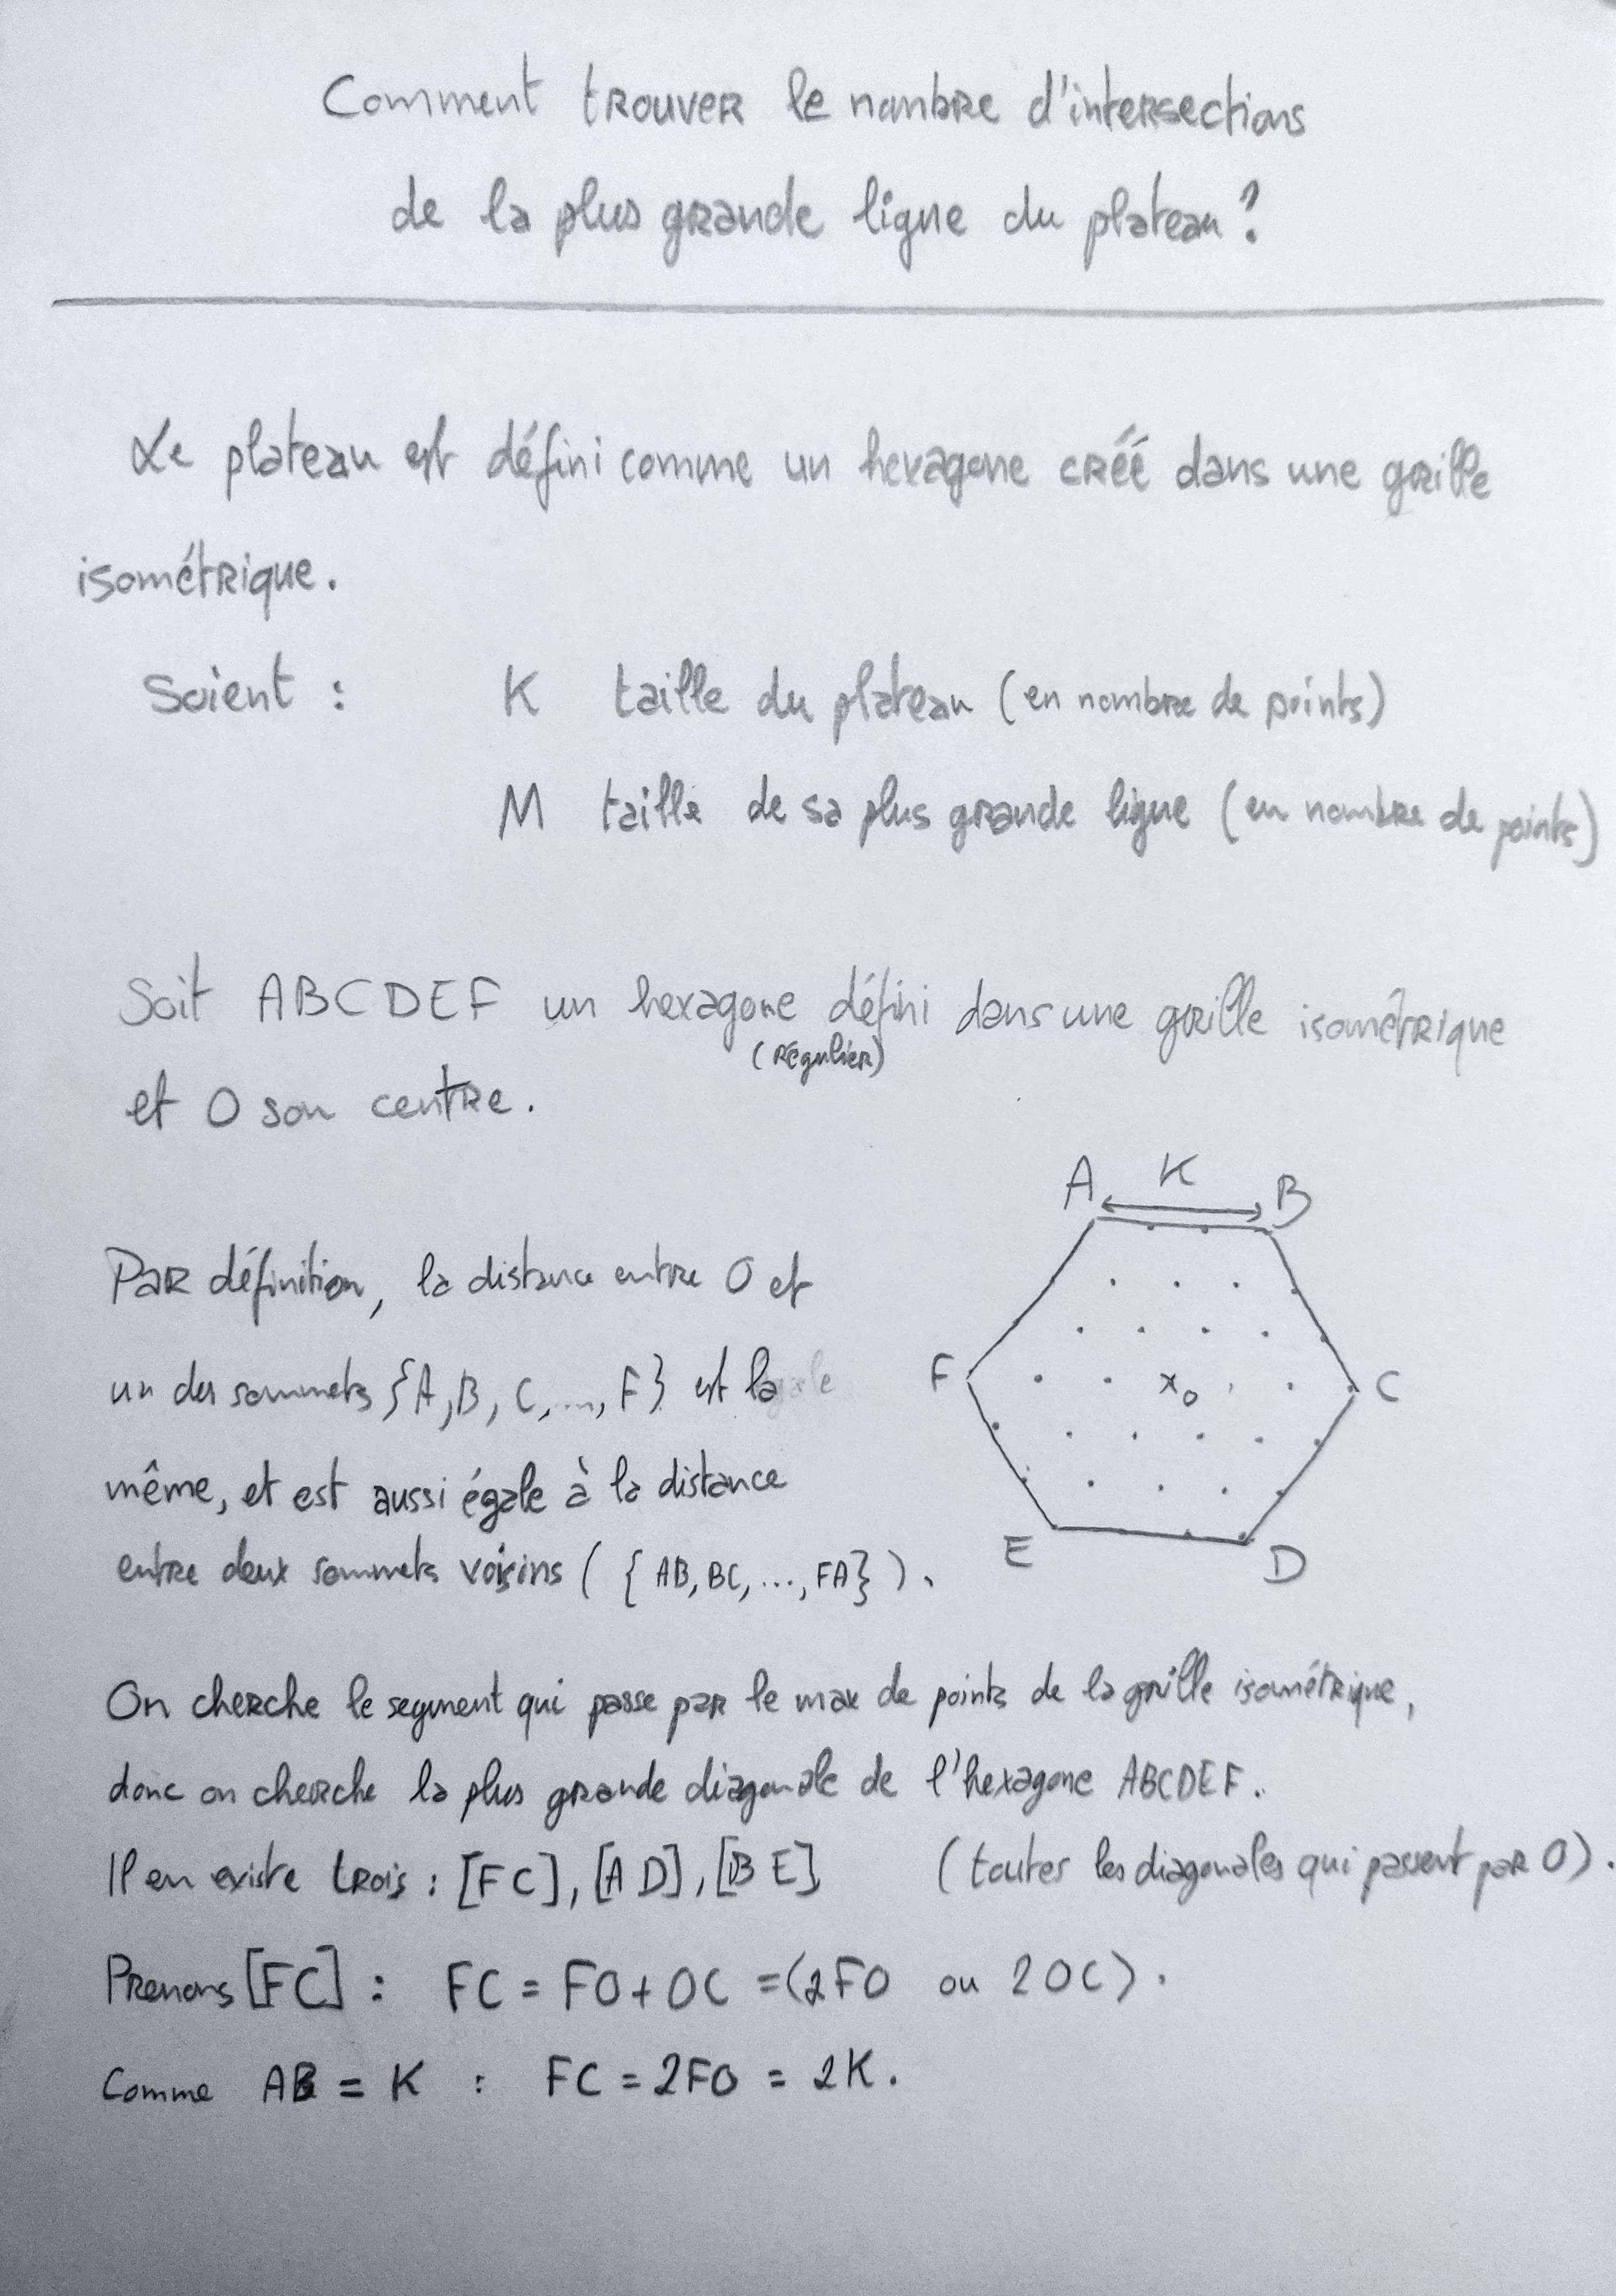 Comment trouver le nombre d'intersections
de la plus grande ligne du plateau ?
Le plateau est défini comme un hexagone créé dans une grille
isométrique.
Soient : K taille du plateau (en nombre de points)
M taille de sa plus grande ligne (en nombre de points)
Soit ABCDEF un hexagone défini dans une grille isométrique
(régulier)
et O son centre.
A K B
Par définition, la distance entre O et
un des sommets {A, B, C, ..., F} est la
F x O C
même, et est aussi égale à la distance
entre deux sommets voisins ( { AB, BC, ..., FA} ).
E D
On cherche le segment qui passe par le max de points de la grille isométrique,
donc on cherche la plus grande diagonale de l'hexagone ABCDEF.
Il en existe trois : [FC], [AD], [BE] (toutes les diagonales qui passent par O).
Prenons [FC] : FC = FO + OC = (2FO ou 2OC).
Comme AB = K : FC = 2FO = 2K.